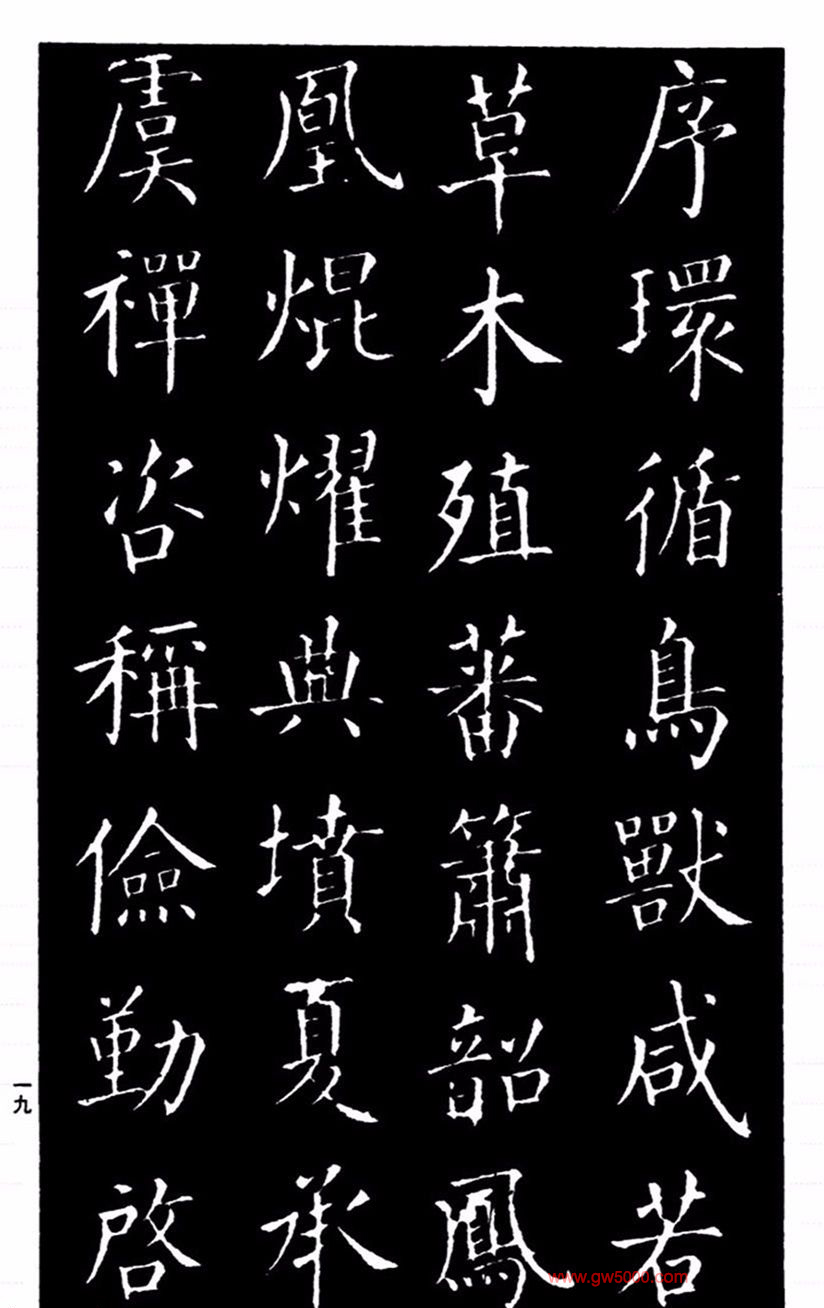 序環循鳥獸咸若
草木殖蕃簫韶鳳
凰焜燿典墳夏承
虞禪咨稱儉勤啓
一九
www.gw5000.com